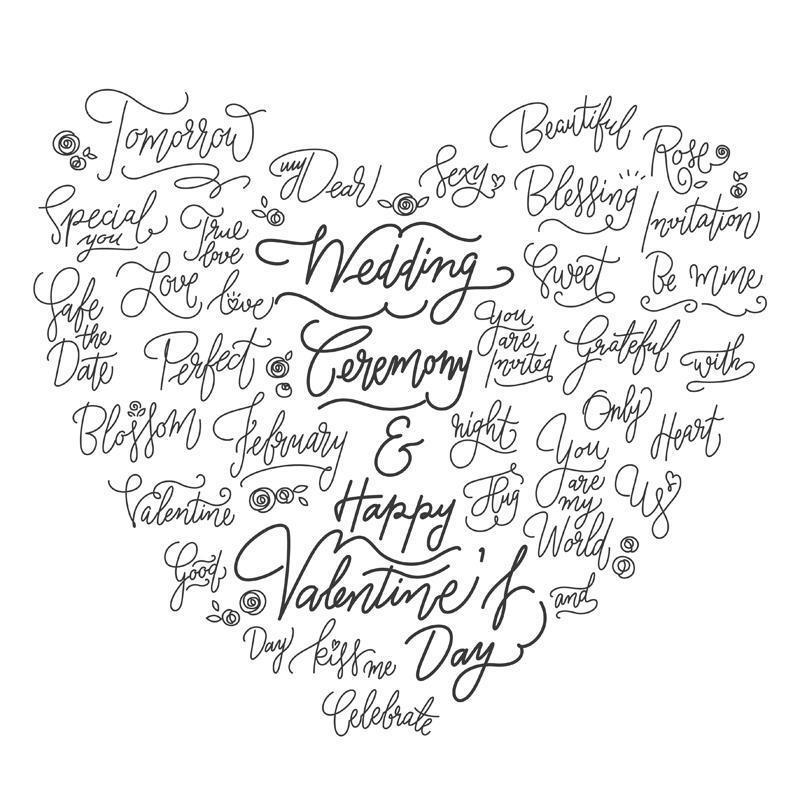 Tomorrow
my Dear
Sexy
Beautiful
Rose
Special
you
True
love
Blessing
Invitation
Wedding
Love
love
Sweet
Be mine
Safe
the
Date
Perfect
Ceremony
You
are
Invited
Grateful
with
Blossom
February
&
night
Only
Heart
You
are
my
World
Valentine
Happy
Hug
Us
Good
Valentine's
and
Day
kiss me
Day
Celebrate